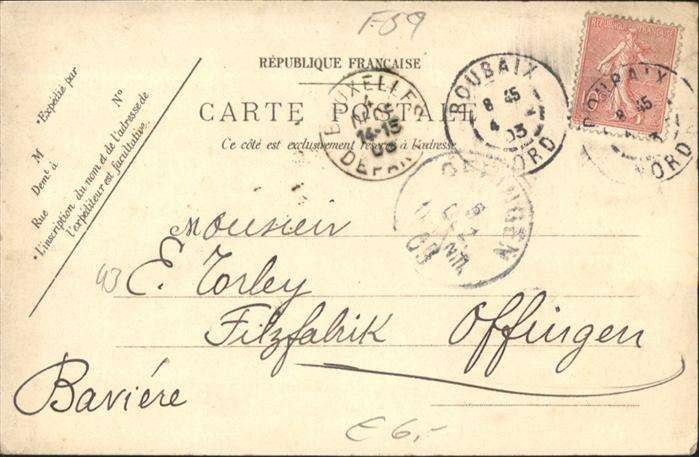 F-59
RÉPUBLIQUE FRANÇAISE
CARTE POSTALE
Ce côté est exclusivement réservé à l'adresse.
*Expédié par
M
Demt à
Rue
N°
*L'inscription du nom et de l'adresse de
l'expéditeur est facultative.
BRUXELLES
14-15
DEPART
ROUBAIX
8 45
4
03
NORD
ROUBAIX
8 45
NORD
OFFINGEN
03
Monsieur
43
E. Torley
Filzfabrik Offingen
Baviére
€ 6,-